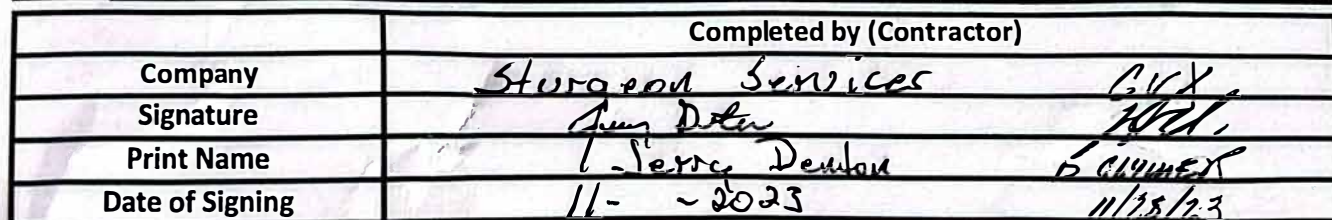 Completed by (Contractor)
Company Sturgeon Services CVX.
Signature
Print Name Jerry Denton B CLYMER
Date of Signing 11- ~2023 11/28/23